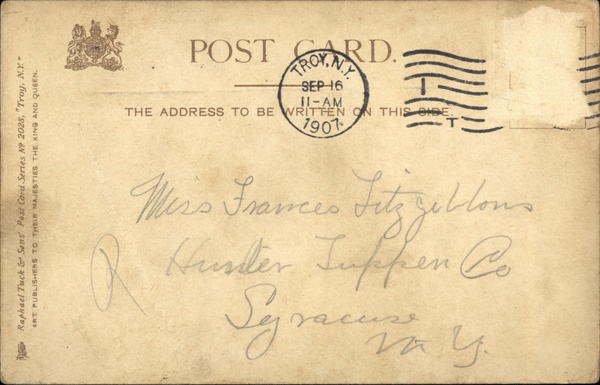 POST CARD.
TROY, N.Y.
SEP 16
11-AM
1907
I
T
THE ADDRESS TO BE WRITTEN ON THIS SIDE.
Raphael Tuck & Sons' Post Card Series Nº 2028, "Troy, N.Y."
ART PUBLISHERS TO THEIR MAJESTIES THE KING AND QUEEN.
Miss Frances Fitzgibbons
Hunter Tuppen Co
Syracuse
N. Y.